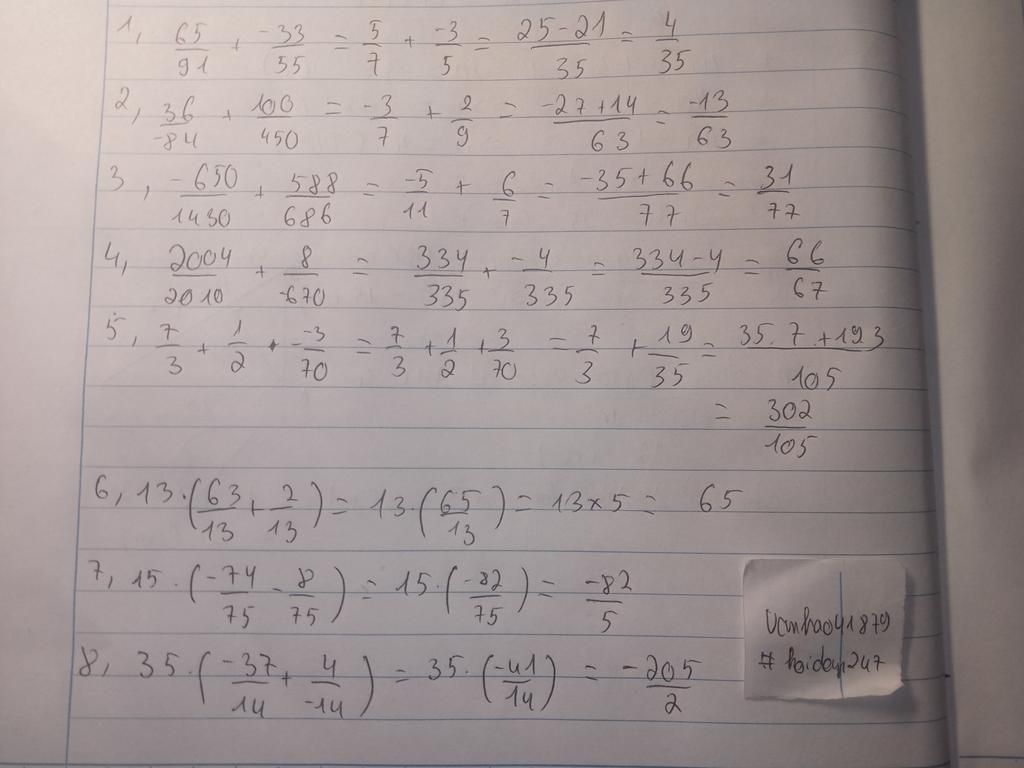 1, 65/91 + -33/55 = 5/7 + -3/5 = 25-21/35 = 4/35
2, 36/-84 + 100/450 = -3/7 + 2/9 = -27+14/63 = -13/63
3, -650/1430 + 588/686 = -5/11 + 6/7 = -35+66/77 = 31/77
4, 2004/2010 + 8/-670 = 334/335 + -4/335 = 334-4/335 = 66/67
5, 7/3 + 1/2 - -3/70 = 7/3 + 1/2 + 3/70 = 7/3 + 19/35 = 35.7+19.3/105
= 302/105
6, 13.(63/13 + 2/13) = 13.(65/13) = 13×5 = 65
7, 15.(-74/75 - 8/75) = 15.(-82/75) = -82/5
8, 35.(-37/14 + 4/-14) = 35.(-41/14) = -205/2
Ucmhao41879
# hoidap247